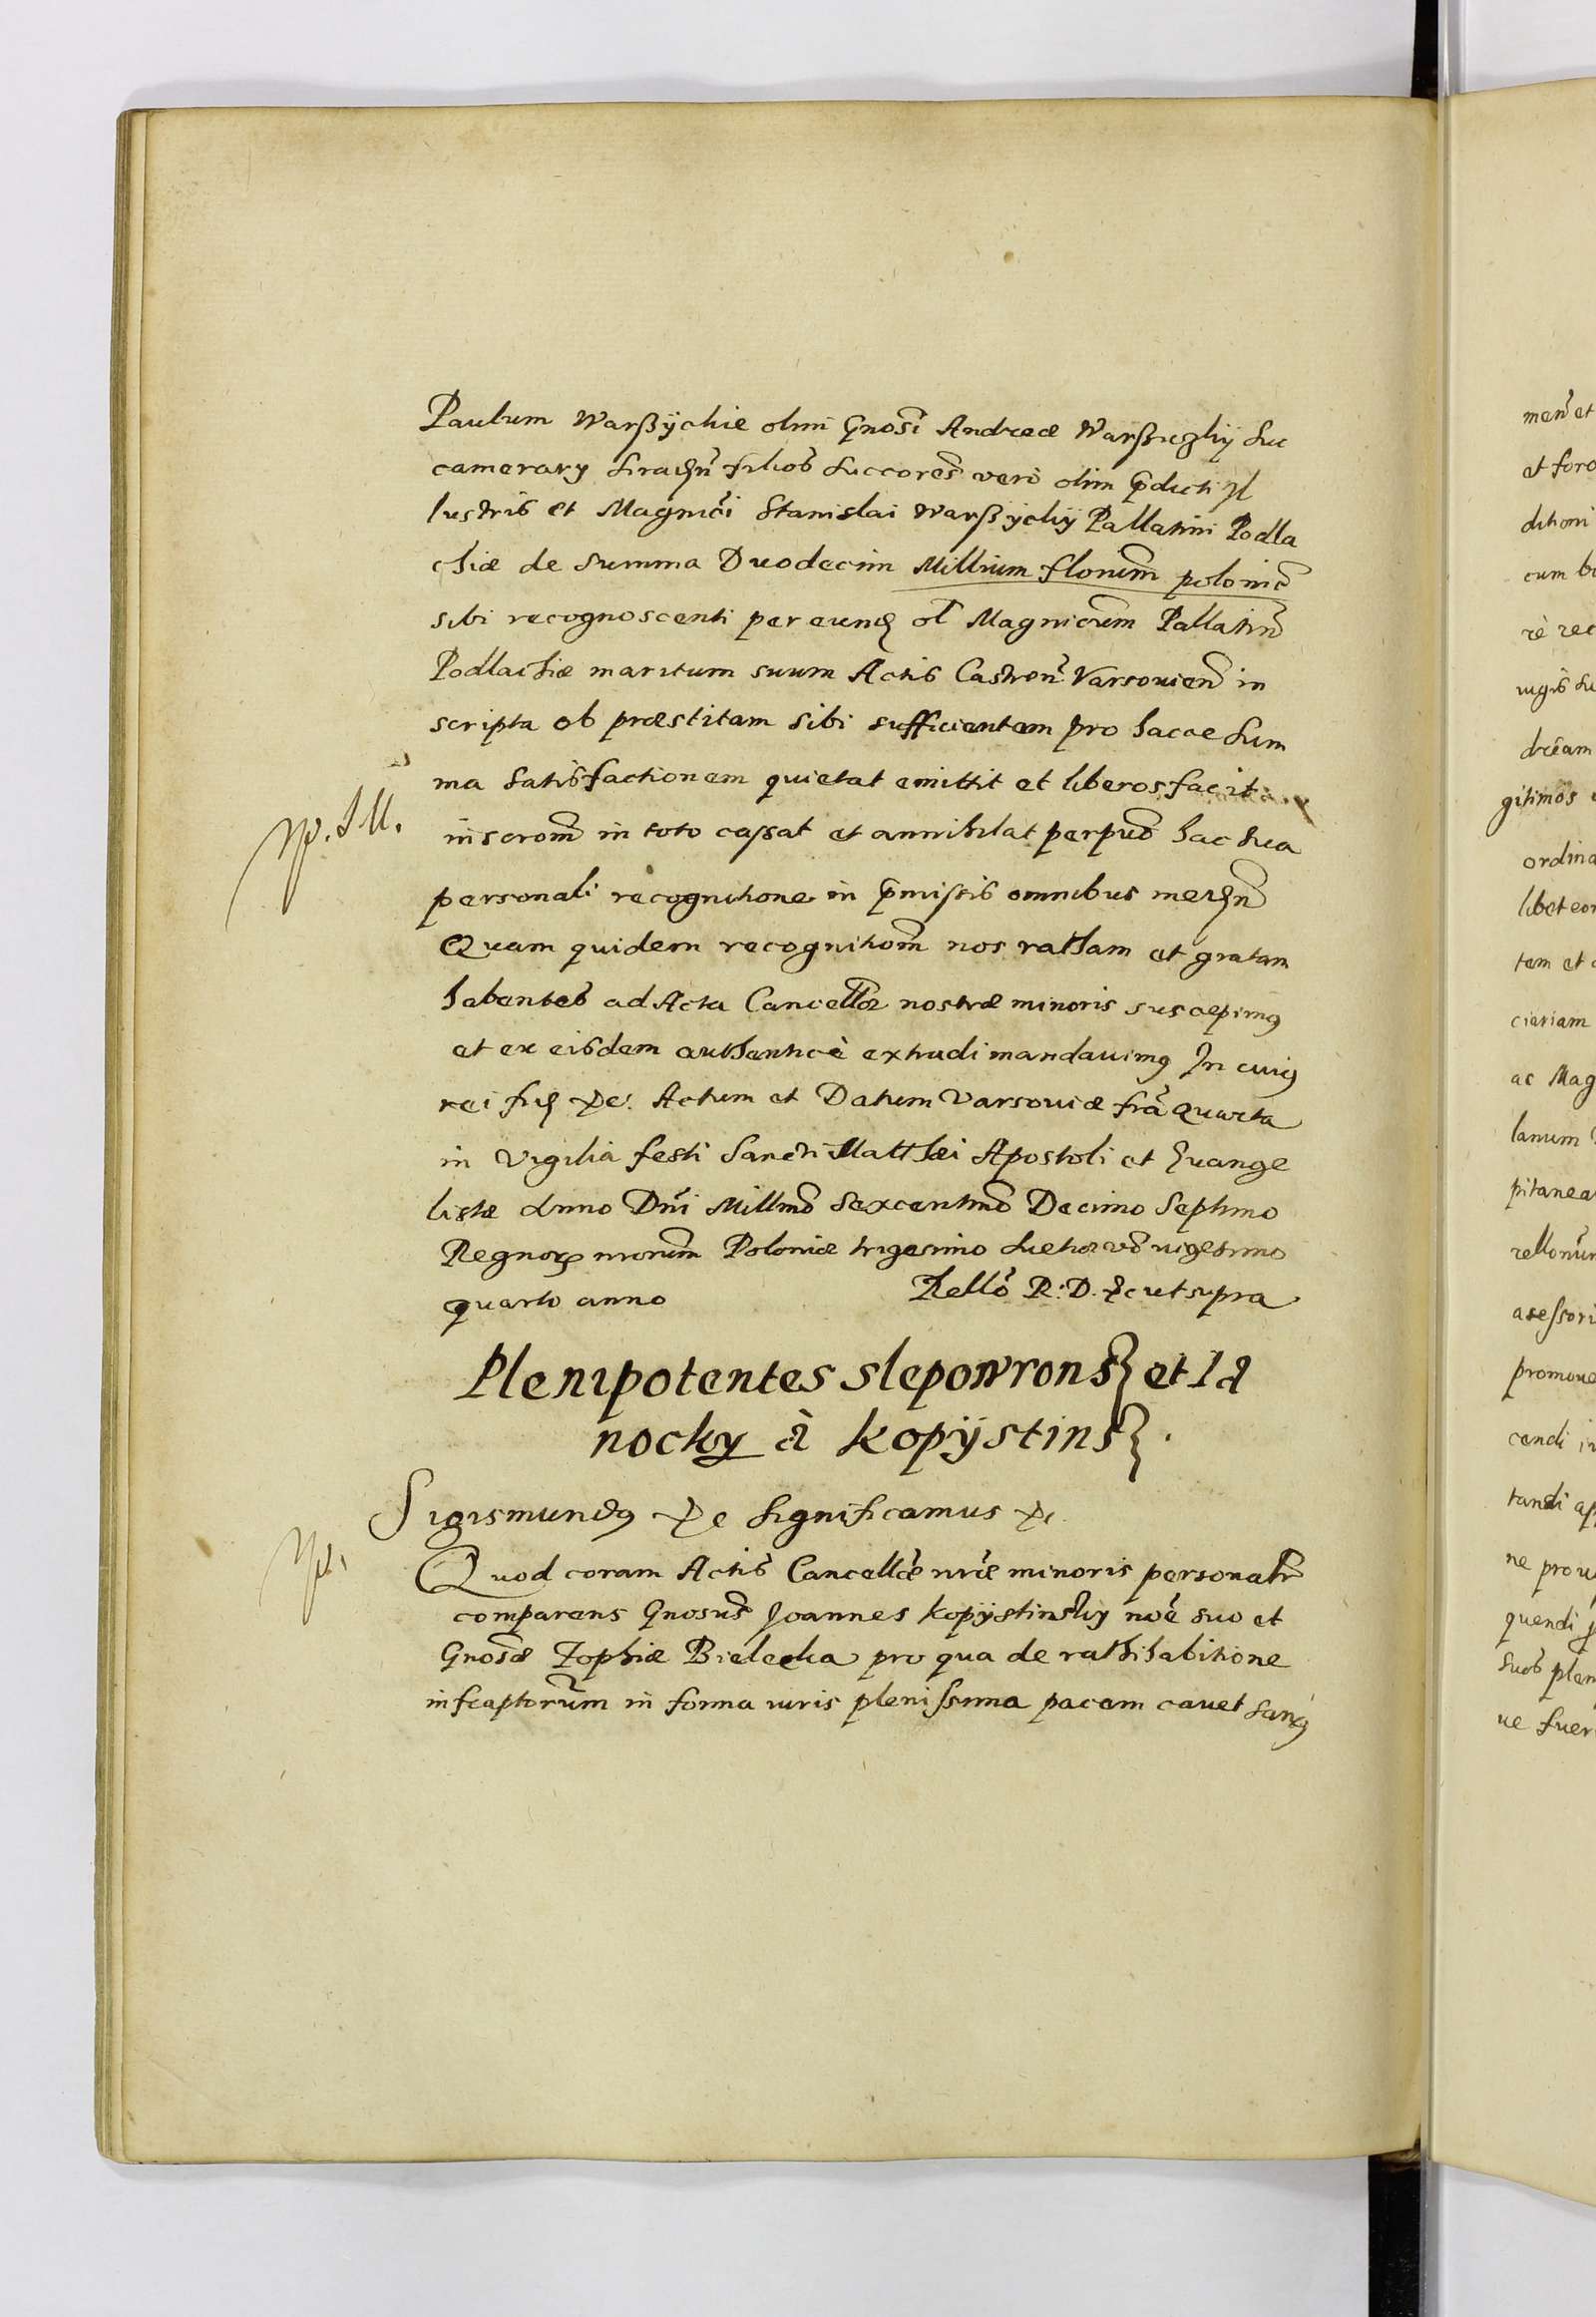 Paulum Warßÿckie olim Gnosi Andreæ Warßiczkÿ Suc
camerarÿ Siradzn filios Succores vero olim p̄dicti Il
lustris et Magnici Stanislai Warßÿckÿ Pallatini Podla
chiæ de Summa Duodecim Millium florenum polonic
sibi recognoscenti per eund ol Magnicum Pallatin
Podlachiæ maritum suum Actis Castren Varsovien in
scripta ob præstitam sibi sufficientem pro hacce Sum
ma Satisfactionem quietat emittit et liberos facit
inscrom in toto cassat et annihilat perpuo hac sua
personali recognitione in p̄missis omnibus med̄n
Quam quidem recognitiom nos ratham et gratam
habentes ad Acta Cancellæ nostræ minoris suscepimus
et ex eisdem authenticè extradi mandavimus In cuius
rei fid etc. Actum et Datum Varsoviæ fra quarta
in vigilia festi Sancti Matthæi Apostoli et Evange
listæ Anno Dni Millmo Sexcentmo Decimo Septimo
Regnor nrorum Poloniæ trigesimo Suetiæ vo vigesimo
quarto anno
Rello R. D. etc ut supra
Plenipotentes slepowrons et Ia
nocky à kopÿstins.
Sigismundus etc Significamus etc
Quod coram Actis Cancellæ nræ minoris personalr
comparens Gnosus Joannes kopÿstinsky noe suo et
Gnosæ Zophiæ Bielecka pro qua de rathihabitione
infraptorum in forma iuris plenissima pacem cavet sanus
men et
et foro
ditioni
cum
rè rec
gitimos
ordina
libet eor
tem et
ciariam
ac Mag
lanum
pitanea
asessori
promove
cendi
tandi
quendi
suos plen
ve fuer